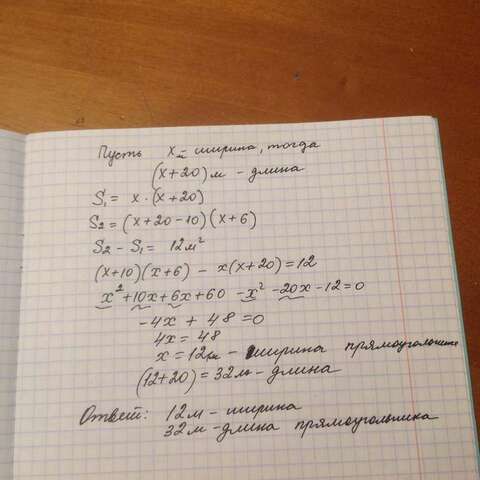 Пусть x м ширина, тогда
(x+20) м - длина
S₁ = x·(x+20)
S₂ = (x+20-10)(x+6)
S₂ - S₁ = 12 м²
(x+10)(x+6) - x(x+20) = 12
x² + 10x + 6x + 60 - x² - 20x - 12 = 0
-4x + 48 = 0
4x = 48
x = 12 м - ширина прямоугольника
(12+20) = 32 м - длина
Ответ: 12 м - ширина
32 м - длина прямоугольника